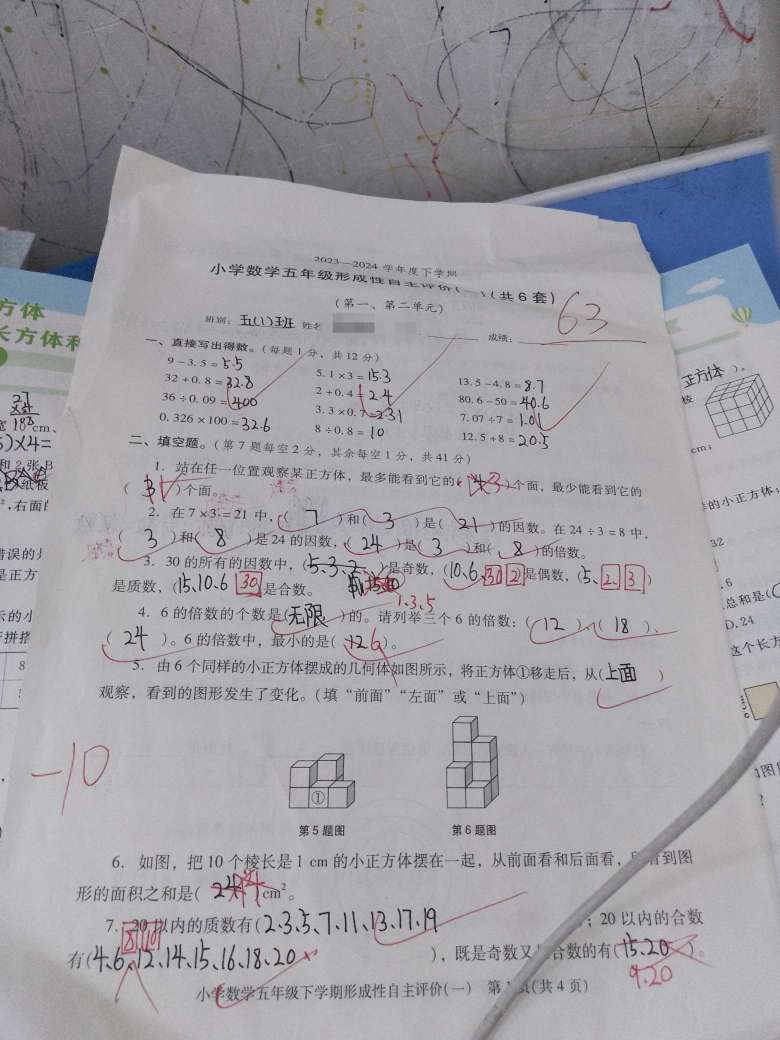 2023—2024 学年度下学期
小学数学五年级形成性自主评价(一)(共 6 套)
(第一、第二单元)
63
班别: 五(1)班 姓名 成绩:
一、直接写出得数。(每题 1 分，共 12 分)
9 − 3. 5 = 5.5 5. 1 × 3 = 15.3 13. 5 − 4. 8 = 8.7
32 + 0. 8 = 32.8 2 + 0. 4 = 2.4 80. 6 − 50 = 40.6
36 ÷ 0. 09 = 400 3. 3 × 0. 7 = 2.31 7. 07 ÷ 7 = 1.01
0. 326 × 100 = 32.6 8 ÷ 0. 8 = 10 12. 5 + 8 = 20.5
二、填空题。(第 7 题每空 2 分，其余每空 1 分，共 41 分)
1. 站在任一位置观察某正方体，最多能看到它的( 3 )个面，最少能看到它的
( )个面。
2. 在 7 × 3 = 21 中，( 7 )和( 3 )是( 21 )的因数。在 24 ÷ 3 = 8 中，
( 3 )和( 8 )是 24 的因数，( 24 )是( 3 )和( 8 )的倍数。
3. 30 的所有的因数中，(5、3、2、)是奇数，(10、6、30 2)是偶数，(5、2、3)
是质数，(15、10、6 30)是合数。
1.3.5
4. 6 的倍数的个数是(无限)的。请列举三个 6 的倍数：( 12 )、( 18 )、
( 24 )。6 的倍数中，最小的是( 12 6 )。
5. 由 6 个同样的小正方体摆成的几何体如图所示，将正方体①移走后，从(上面 )
观察，看到的图形发生了变化。(填“前面”“左面”或“上面”)
-10
①
第 5 题图 第 6 题图
6. 如图，把 10 个棱长是 1 cm 的小正方体摆在一起，从前面看和后面看，所看到图
形的面积之和是( )cm²。
7. 20 以内的质数有(2、3、5、7、11、13、17、19 )；20 以内的合数
8 10
有(4、6、12、14、15、16、18、20 )，既是奇数又是合数的有(15、20)。
9.20
小学数学五年级下学期形成性自主评价(一) 第 1 页(共 4 页)
方体
长方体和
正方体 )。
棱
cm；
的小正方体；
32
总和是(
D. 24
这个长方